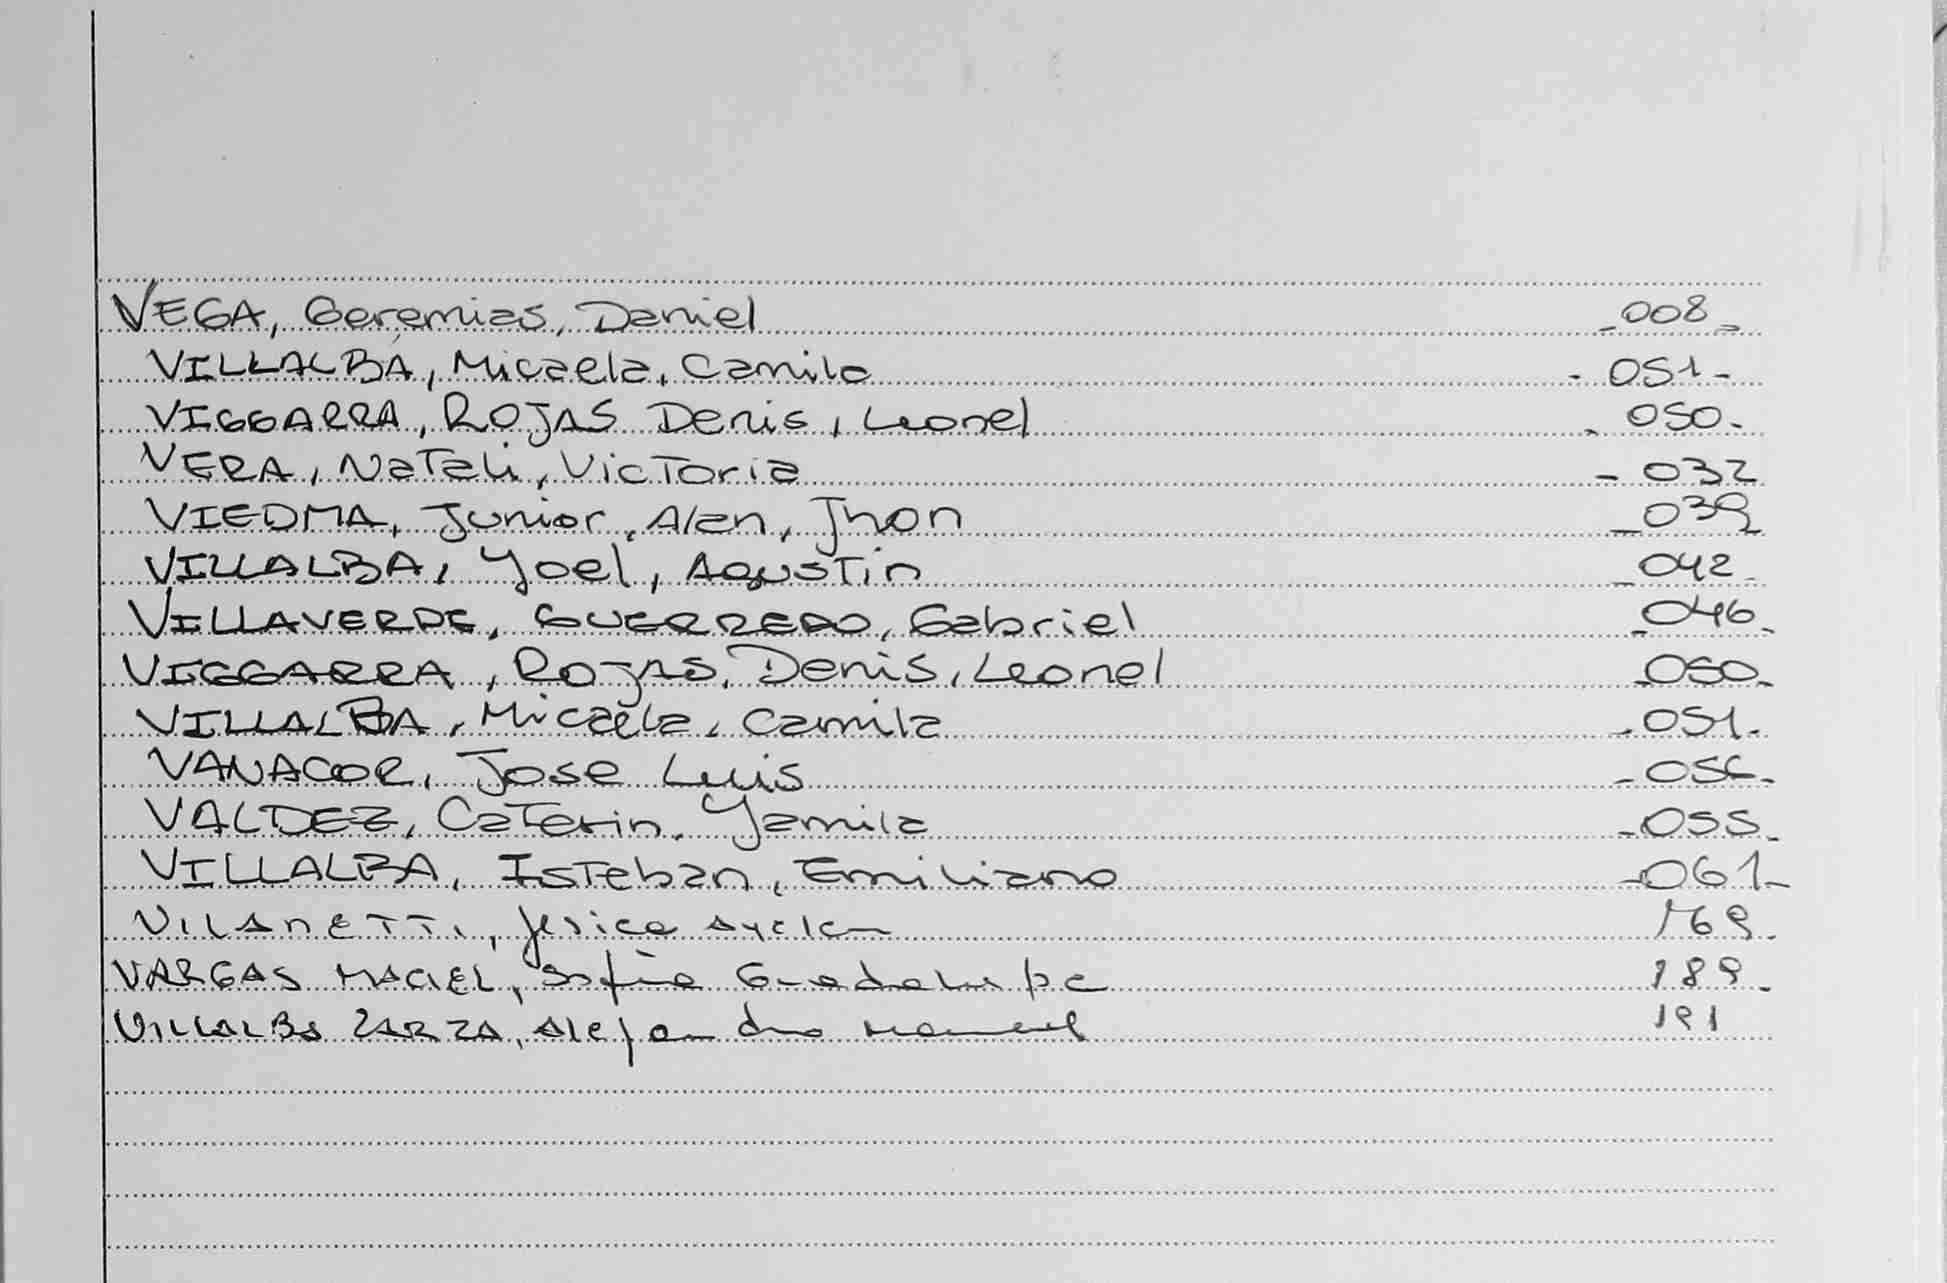 VEGA, Geremias, Daniel -008-
VILLALBA, Micaela, Camila - 051-
VIGGARRA, ROJAS Denis, Leonel - 050-
VERA, Natali, Victoria - 032
VIEDMA, Junior, Alan, Jhon -039
VILLALBA, Yoel, Agustin -042-
VILLAVERDE, GUERRERO, Gabriel -046-
VIGGARRA, ROJAS, Denis, Leonel -050-
VILLALBA, Micaela, Camila -051-
VANACOR, Jose Luis
VALDEZ, Caterin, Yamila -055-
VILLALBA, Isteban, Emiliano -061-
VILANETTI, Jesica Ayelen 169-
VARGAS MACIEL, Sofia Guadalupe 189-
VILLALBA ZARZA, Alejandro Manuel 191